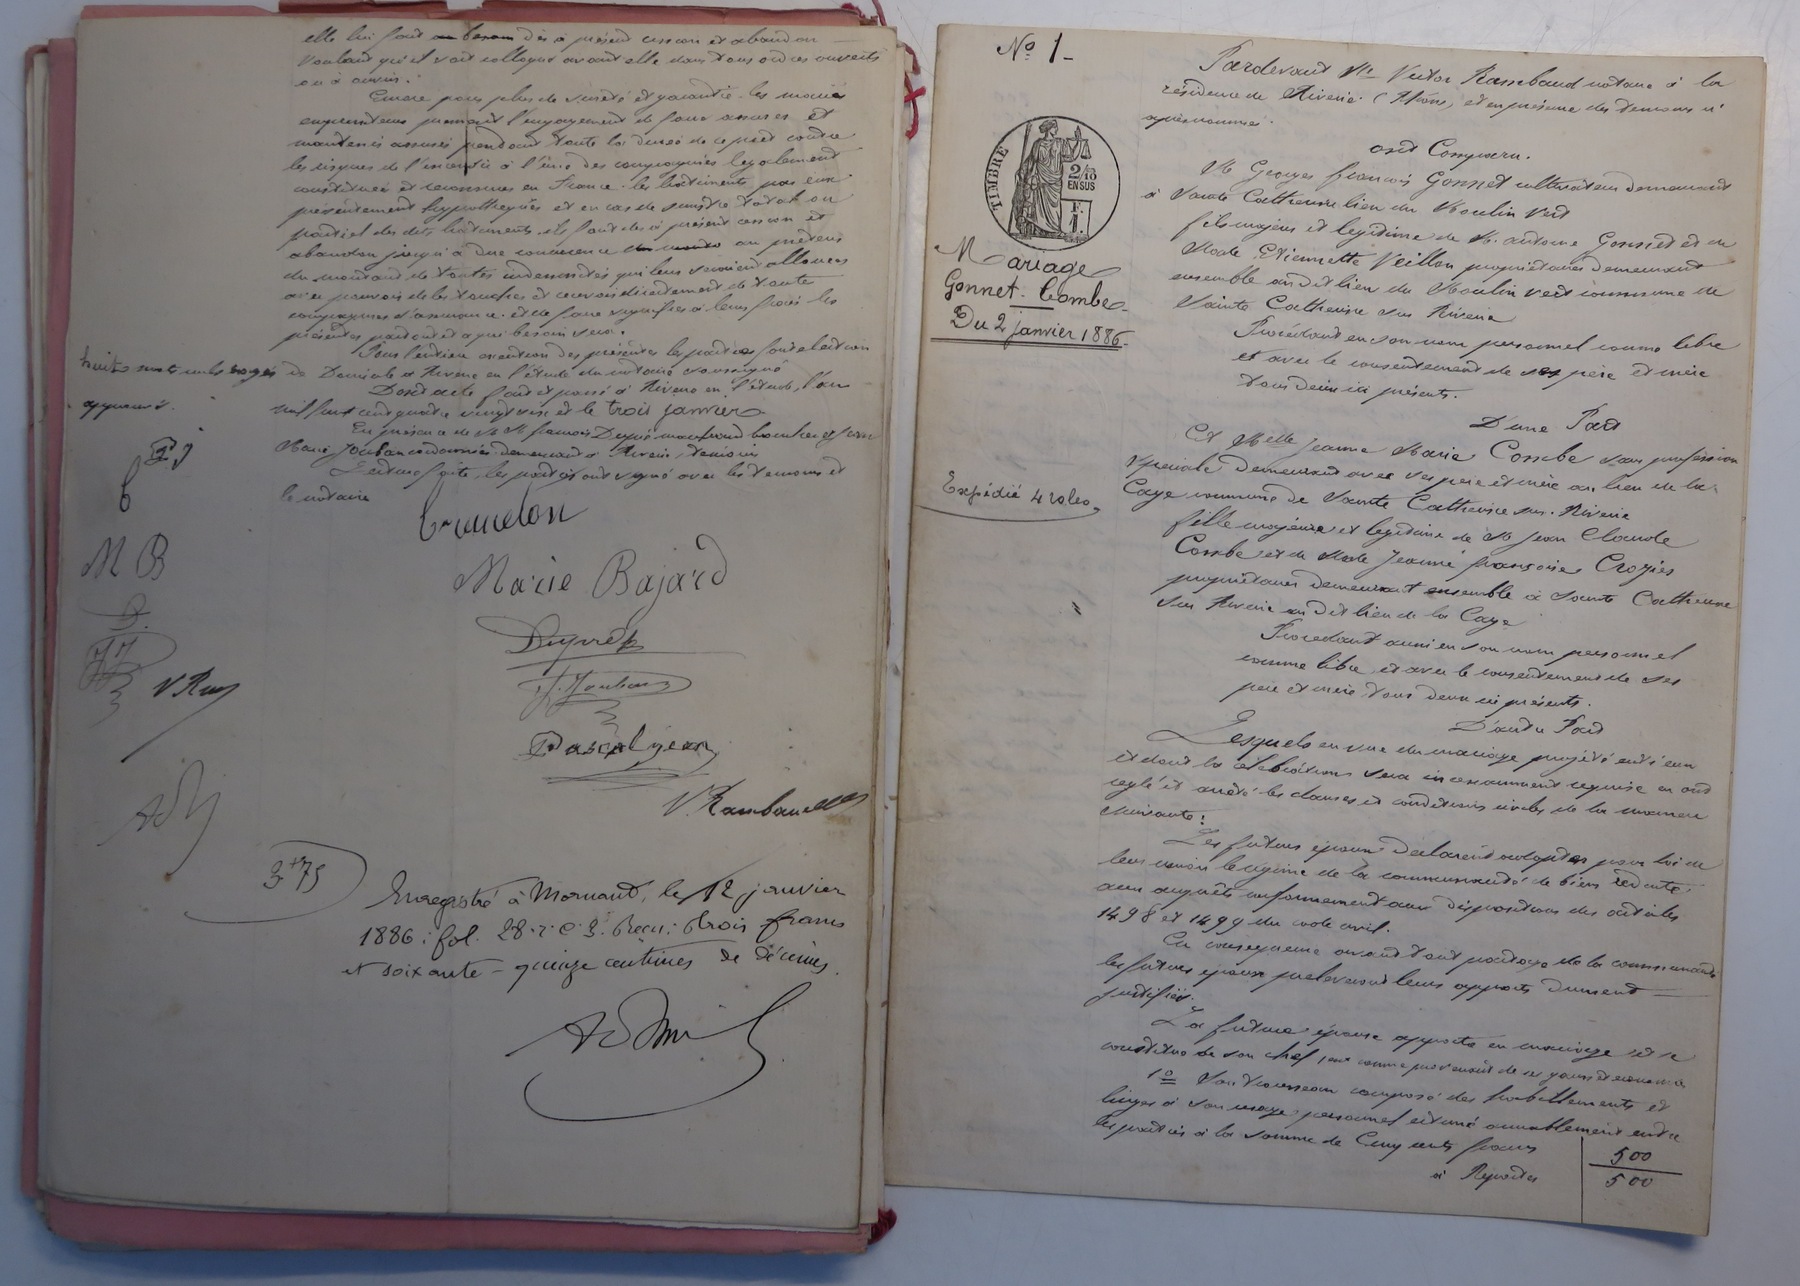 elle lui fait au besoin dès à présent cession et abandon
voulant qu'il soit colloqué avant elle dans tous ordres ouverts
ou à ouvrir.
Encore pour plus de sureté et garantie les mariés
emprunteurs prennent l'engagement de faire assurer et
maintenir assurés pendant toute la durée de ce prêt contre
les risques de l'incendie à l'une des compagnies légalement
constituées et reconnues en France les bâtiments par eux
présentement hypothéqués et en cas de sinistre total ou
partiel des dits bâtiments ils font dès à présent cession et
abandon jusqu'à due concurrence au prêteur
du montant de toutes indemnités qui leur seraient allouées
avec pouvoir de les toucher et recevoir directement de toute
compagnies d'assurance et de faire signifier à leurs frais les
présentes partout et à qui besoin sera.
Pour l'entière exécution des présentes les parties font élection
de Domicile à Riverie en l'étude du notaire soussigné
Dont acte fait et passé à Riverie en l'étude, l'an
mil huit cent quatre vingt six et le trois janvier
En présence de MM françois Dupré marchand boucher et Jean
Marie Jouban cordonnier demeurant à Riverie, témoins
Lecture faite, les parties ont signé avec les témoins et
le notaire
huit mots nuls rayés
approuvés.
PJ
M B
D.
JJ
V Ram
Marie Bajard
Dupré
J. Jouban
Pascal jean
V. Rambaud
3+75
Enregistré à Mornant, le 12 janvier
1886, fol. 28. r. c. 3. Reçu: trois francs
et soixante-quinze centimes de décimes.
No 1-
TIMBRE
2/10
EN SUS
F.
1.
Mariage
Gonnet-Combe
Du 2 janvier 1886-
Expédié 4 roles.
Pardevant Me Victor Rambaud notaire à la
résidence de Riverie (Rhône) et en présence des témoins ci
après nommés.
ont Comparu.
M Georges françois Gonnet cultivateur demeurant
à Sainte Catherine lieu du Moulin Vert
fils majeur et légitime de M. antoine Gonnet et de
Made Etiennette Veillon propriétaires demeurant
ensemble au dit lieu du Moulin vert commune de
Sainte Catherine sur Riverie
Procédant en son nom personnel comme libre
et avec le consentement de ses père et mère
tous deux ici présents.
D'une Part
Et Melle Jeanne Marie Combe sans profession
spéciale demeurant avec ses père et mère au lieu de la
Caye commune de Sainte Catherine sur Riverie
fille majeure et légitime de M Jean Claude
Combe et de Made Jeanne françoise Crozier
propriétaires demeurant ensemble à Sainte Catherine
sur Riverie au dit lieu de la Caye
Procédant aussi en son nom personnel
comme libre et avec le consentement de ses
père et mère tous deux ici présents.
D'autre Part
Lesquels en vue du mariage projeté entre eux
et dont la célébration sera incessamment requise en ont
réglé et arrêté les clauses et conditions civiles de la manière
suivante:
Les futurs époux déclarent adopter pour loi de
leur union le régime de la communauté de biens réduite
aux acquêts conformément aux dispositions des articles
1498 et 1499 du code civil.
En conséquence avant tout partage de la communauté
les futurs époux prélèveront leurs apports dument
justifiés.
La future épouse apporte en mariage et se
constitue de son chef comme provenant de ses gains et économies
1o Son trousseau composé des habillements et
linges à son usage personnel estimé amiablement entre
les parties à la somme de Cinq cents francs
500
à Reporter
500